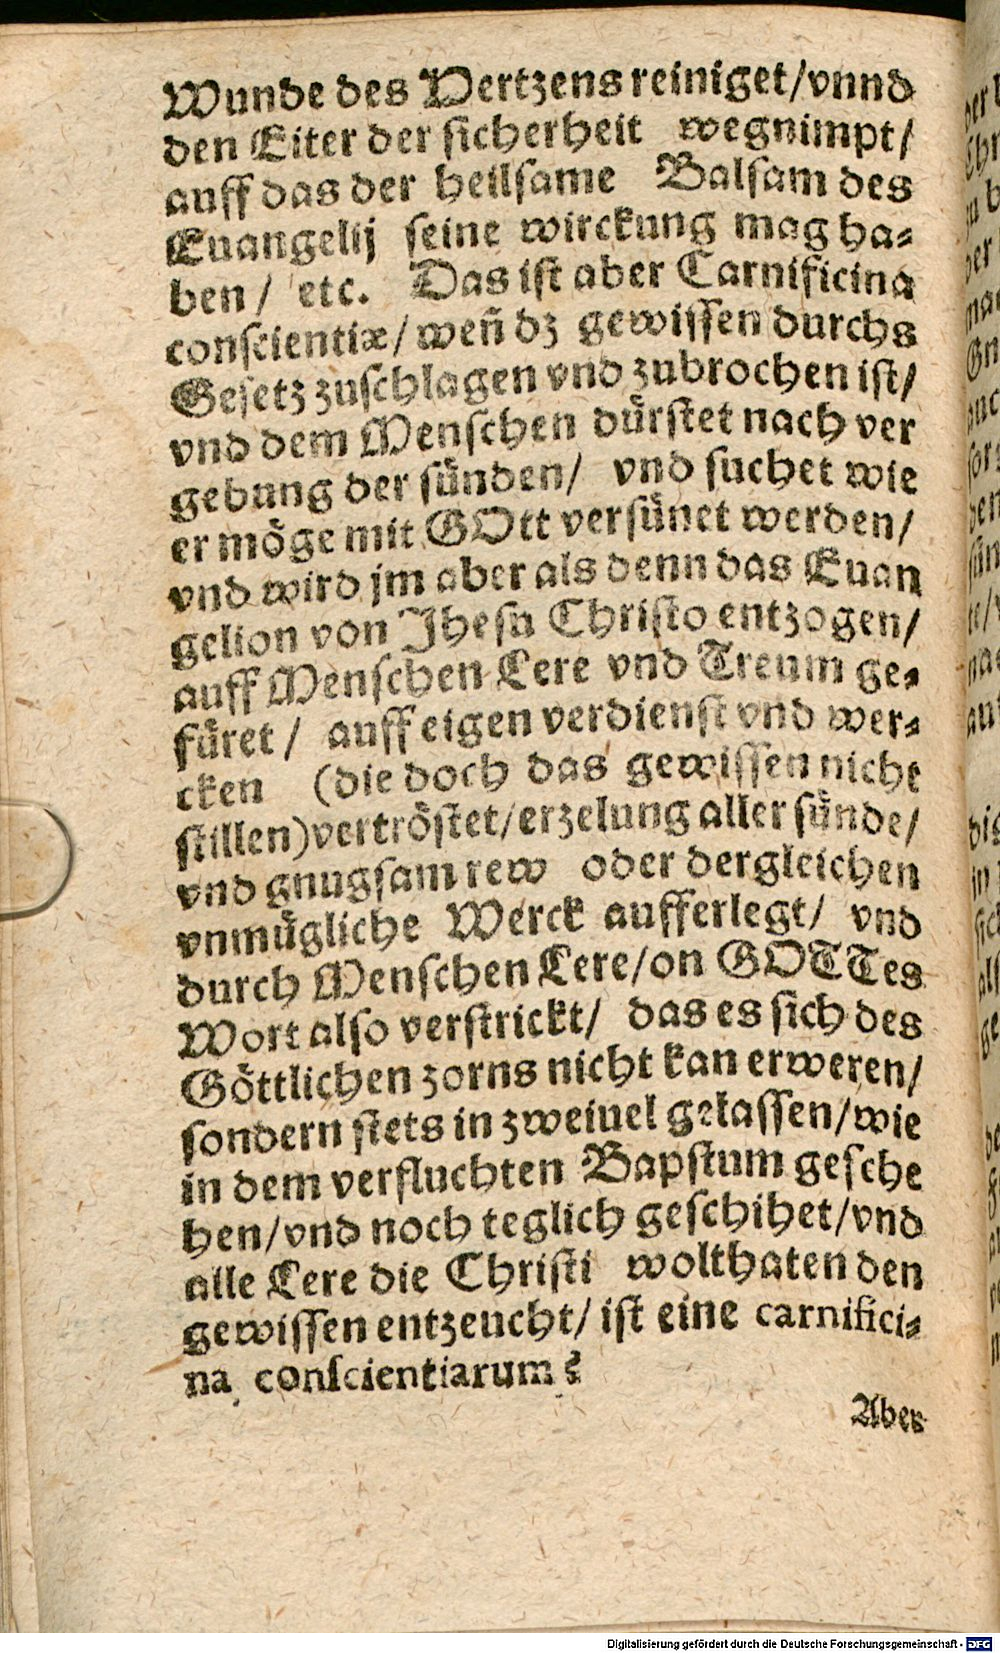 Wunde des Hertzens reiniget/vnnd
den Eiter der sicherheit wegnimpt/
auff das der heilsame Balsam des
Euangelij seine wirckung mag ha-
ben/ etc. Das ist aber Carnificina
conscientiæ/ weñ dz gewissen durchs
Gesetz zuschlagen vnd zubrochen ist/
vnd dem Menschen dürstet nach ver
gebung der sünden/ vnd suchet wie
er möge mit GOtt versünet werden/
vnd wird jm aber als denn das Euan
gelion von Jhesu Christo entzogen/
auff Menschen Lere vnd Treum ge-
füret/ auff eigen verdienst vnd wer-
cken (die doch das gewissen nicht
stillen) vertröstet/erzelung aller sünde/
vnd gnugsam rew oder dergleichen
vnmügliche Werck aufferlegt/ vnd
durch Menschen Lere/on GOTTes
Wort also verstrickt/ das es sich des
Göttlichen zorns nicht kan erweren/
sondern stets in zweiuel gelassen/wie
in dem verfluchten Bapstum gesche
hen/vnd noch teglich geschihet/vnd
alle Lere die Christi wolthaten den
gewissen entzeucht/ ist eine carnifici-
na conscientiarum?
Aber
Digitalisierung gefördert durch die Deutsche Forschungsgemeinschaft - DFG